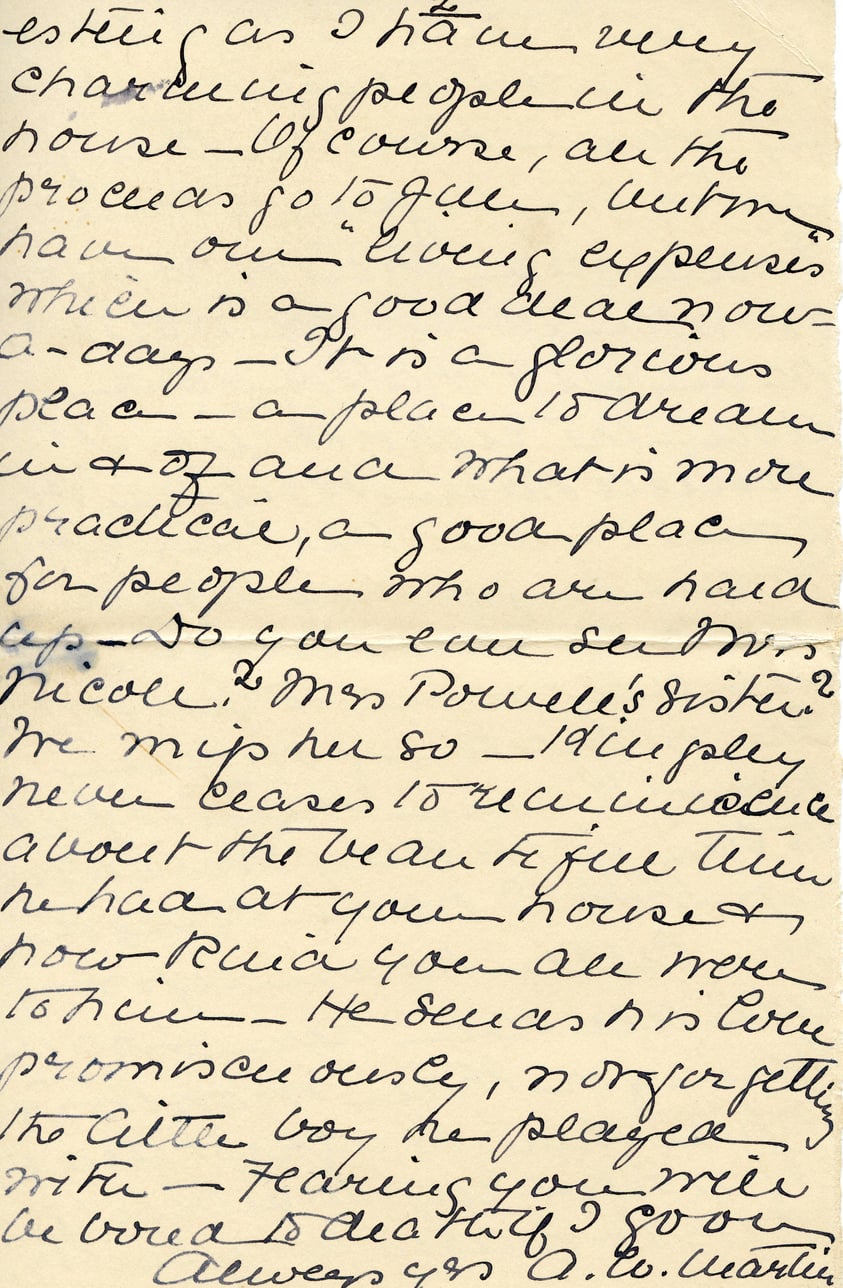 esting as I have very
charming people in the
house – Of course, all the
proceeds go to Jill, but we
have our "living expenses"
which is a good deal now-
a-days – It is a glorious
place – a place to dream
in & of and what is more
practical, a good place
for people who are hard
up – Do you ever see Mrs
Nicoll? Mrs Powell's sister?
We miss her so – Kingsley
never ceases to reminiscence
about the beautiful time
he had at your house &
how kind you all were
to him – He sends his love
promiscuously, not forgetting
the little boy he played
with – Fearing you will
be bored to death if I go on
Always yrs A. W. Martin